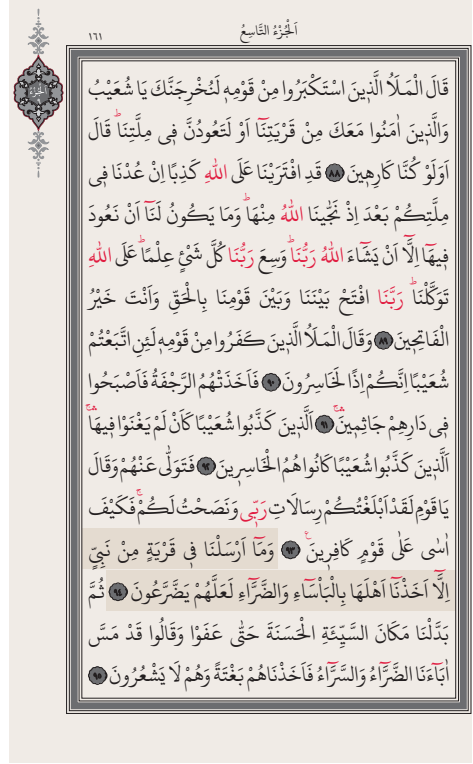 اَلْجُزْءُ التَّاسِعُ
١٦١
اَلْجُزْءُ
٩
قَالَ الْمَلَاُ الَّذٖينَ اسْتَكْبَرُوا مِنْ قَوْمِهٖ لَنُخْرِجَنَّكَ يَا شُعَيْبُ
وَالَّذٖينَ اٰمَنُوا مَعَكَ مِنْ قَرْيَتِنَٓا اَوْ لَتَعُودُنَّ فٖى مِلَّتِنَاؕ قَالَ
اَوَلَوْ كُنَّا كَارِهٖينَ ﴿٨٨﴾ قَدِ افْتَرَيْنَا عَلَى اللّٰهِ كَذِبًا اِنْ عُدْنَا فٖى
مِلَّتِكُمْ بَعْدَ اِذْ نَجّٰينَا اللّٰهُ مِنْهَاؕ وَمَا يَكُونُ لَنَٓا اَنْ نَعُودَ
فٖيهَٓا اِلَّٓا اَنْ يَشَٓاءَ اللّٰهُ رَبُّنَاؕ وَسِعَ رَبُّنَا كُلَّ شَیْءٍ عِلْمًاؕ عَلَى اللّٰهِ
تَوَكَّلْنَاؕ رَبَّنَا افْتَحْ بَيْنَنَا وَبَيْنَ قَوْمِنَا بِالْحَقِّ وَاَنْتَ خَيْرُ
الْفَاتِحٖينَ ﴿٨٩﴾ وَقَالَ الْمَلَاُ الَّذٖينَ كَفَرُوا مِنْ قَوْمِهٖ لَئِنِ اتَّبَعْتُمْ
شُعَيْبًا اِنَّكُمْ اِذًا لَخَاسِرُونَ ﴿٩٠﴾ فَاَخَذَتْهُمُ الرَّجْفَةُ فَاَصْبَحُوا
فٖى دَارِهِمْ جَاثِمٖينَۚۛ ﴿٩١﴾ اَلَّذٖينَ كَذَّبُوا شُعَيْبًا كَاَنْ لَمْ يَغْنَوْا فٖيهَاۚۛ
اَلَّذٖينَ كَذَّبُوا شُعَيْبًا كَانُوا هُمُ الْخَاسِرٖينَ ﴿٩٢﴾ فَتَوَلّٰى عَنْهُمْ وَقَالَ
يَا قَوْمِ لَقَدْ اَبْلَغْتُكُمْ رِسَالَاتِ رَبّٖى وَنَصَحْتُ لَكُمْۚ فَكَيْفَ
اٰسٰى عَلٰى قَوْمٍ كَافِرٖينَࣖ ﴿٩٣﴾ وَمَٓا اَرْسَلْنَا فٖى قَرْيَةٍ مِنْ نَبِىٍّ
اِلَّٓا اَخَذْنَٓا اَهْلَهَا بِالْبَاْسَٓاءِ وَالضَّرَّٓاءِ لَعَلَّهُمْ يَضَّرَّعُونَ ﴿٩٤﴾ ثُمَّ
بَدَّلْنَا مَكَانَ السَّيِّئَةِ الْحَسَنَةَ حَتّٰى عَفَوْا وَقَالُوا قَدْ مَسَّ
اٰبَٓاءَنَا الضَّرَّٓاءُ وَالسَّرَّٓاءُ فَاَخَذْنَاهُمْ بَغْتَةً وَهُمْ لَا يَشْعُرُونَ ﴿٩٥﴾